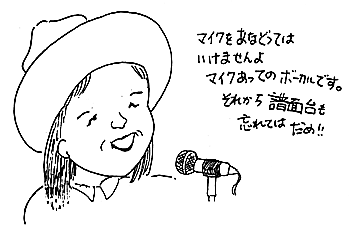 マイクをあなどっては
いけませんよ
マイクあってのボーカルです。
それから譜面台も
忘れてはだめ!!